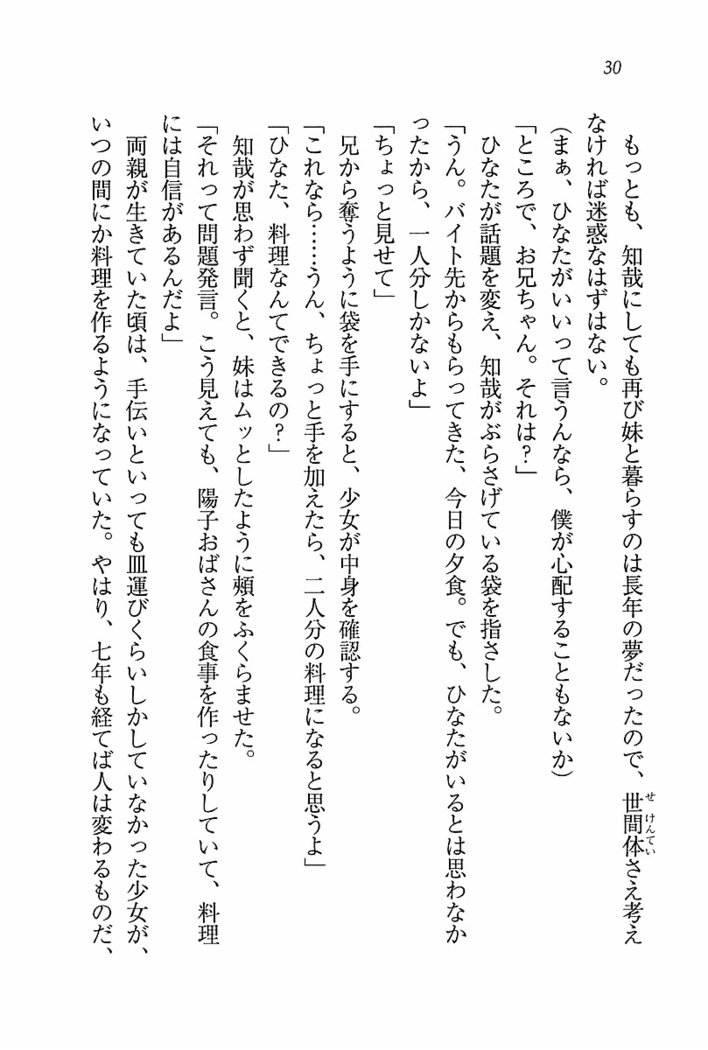 30
もっとも、知哉にしても再び妹と暮らすのは長年の夢だったので、世間体さえ考え
せけんてい
なければ迷惑なはずはない。
(まぁ、ひなたがいいって言うんなら、僕が心配することもないか)
「ところで、お兄ちゃん。それは?」
ひなたが話題を変え、知哉がぶらさげている袋を指さした。
「うん。バイト先からもらってきた、今日の夕食。でも、ひなたがいるとは思わなか
ったから、一人分しかないよ」
「ちょっと見せて」
兄から奪うように袋を手にすると、少女が中身を確認する。
「これなら……うん、ちょっと手を加えたら、二人分の料理になると思うよ」
「ひなた、料理なんてできるの?」
知哉が思わず聞くと、妹はムッとしたように頬をふくらませた。
「それって問題発言。こう見えても、陽子おばさんの食事を作ったりしていて、料理
には自信があるんだよ」
両親が生きていた頃は、手伝いといっても皿運びくらいしかしていなかった少女が、
いつの間にか料理を作るようになっていた。やはり、七年も経てば人は変わるものだ、